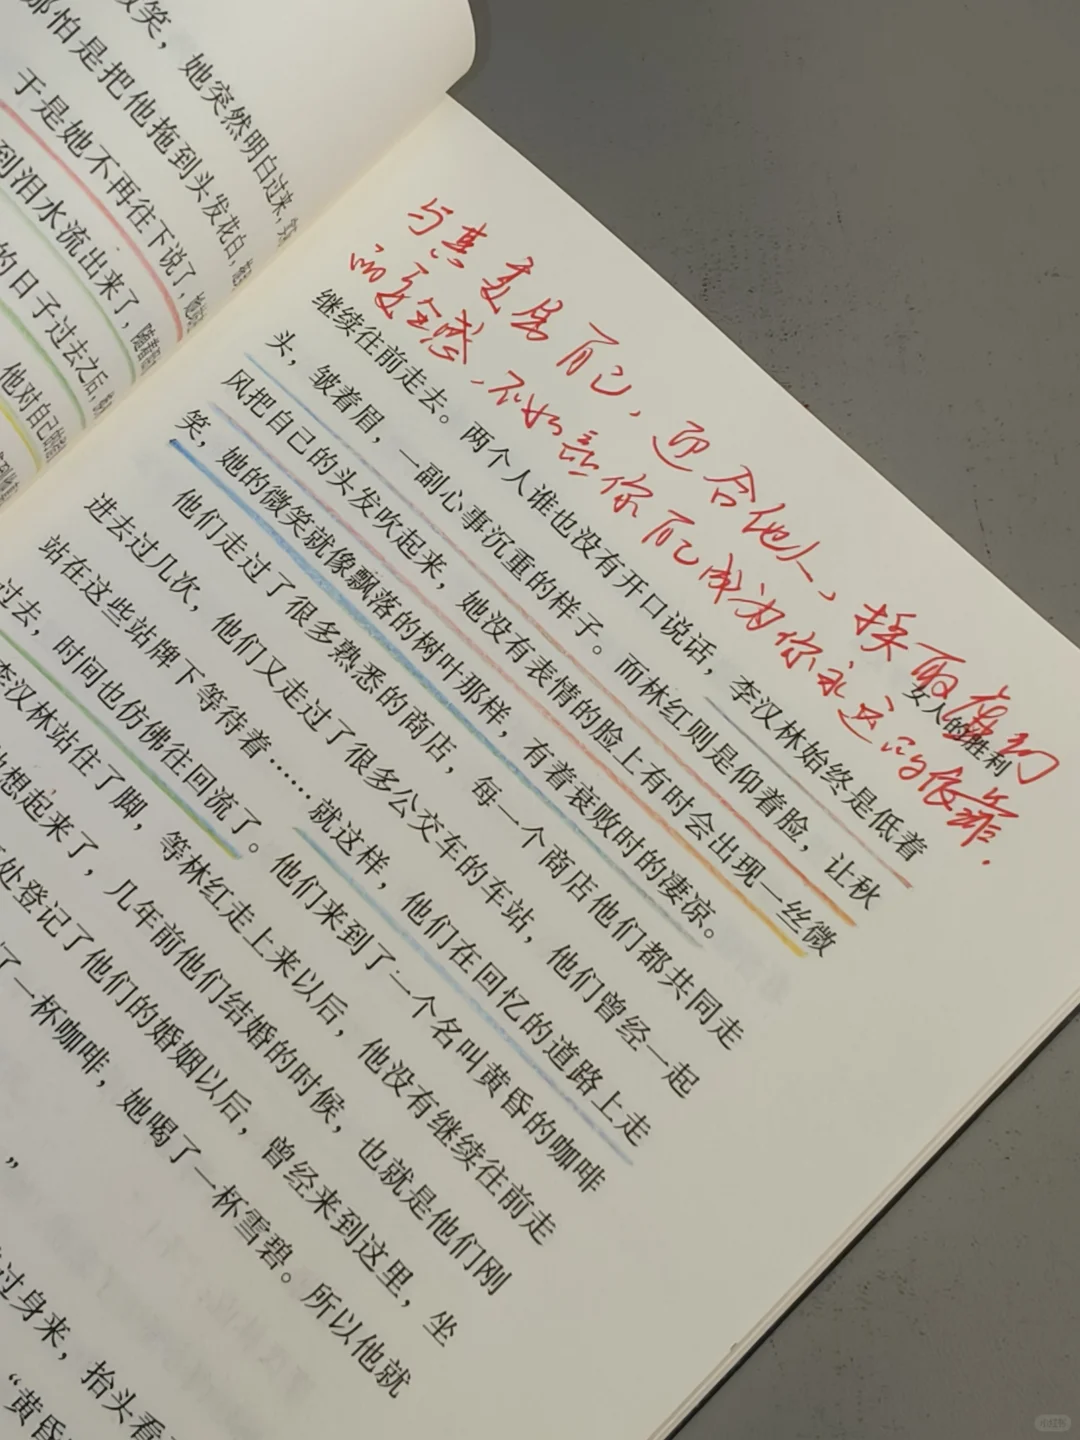 笑，她突然明白过来，
怕是把他拖到头发花白，
于是她不再往下说了，
到泪水流出来了，随着
的日子过去之后，
他对自己
与其委屈自己，迎合他人，换取
的安全感，不如让你自己成为你永远的依靠.
女人的胜利
继续往前走去。两个人谁也没有开口说话，李汉林始终是低着
头，皱着眉，一副心事沉重的样子。而林红则是仰着脸，让秋
风把自己的头发吹起来，她没有表情的脸上有时会出现一丝微
笑，她的微笑就像飘落的树叶那样，有着衰败时的凄凉。
他们走过了很多熟悉的商店，每一个商店他们都共同走
进去过几次，他们又走过了很多公交车的车站，他们曾经一起
站在这些站牌下等待着……就这样，他们在回忆的道路上走
过去，时间也仿佛往回流了。他们来到了一个名叫黄昏的咖啡
李汉林站住了脚，等林红走上来以后，他没有继续往前走
想起来了，几年前他们结婚的时候，也就是他们刚
处登记了他们的婚姻以后，曾经来到这里，坐
了一杯咖啡，她喝了一杯雪碧。所以他就
”
过身来，抬头看
“黄昏
小红书